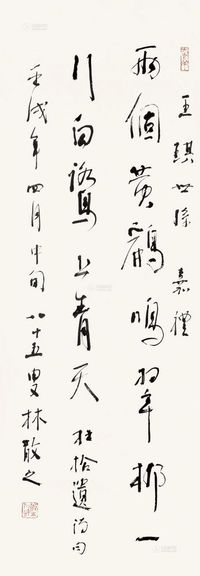 王琪世孫嘉禮
兩個黄鸝鳴翠柳一
行白鷺上青天 杜拾遺詩句
壬戌年四月中旬八十五叟林散之